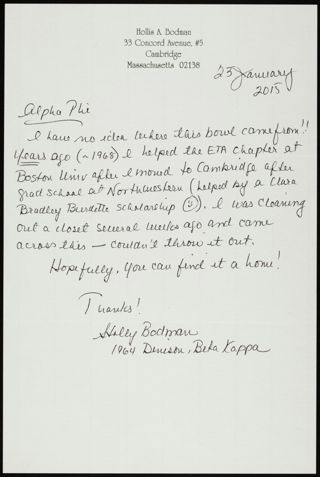 Hollis A. Bodman
33 Concord Avenue, #5
Cambridge
Massachusetts 02138
23 January
2015
Alpha Phi
I have no idea where this bowl came from!!
Years ago (~1968) I helped the ETA chapter at
Boston Univ after I moved to Cambridge after
grad school at Northwestern (helped by a Clara
Bradley Burdette scholarship ☺). I was cleaning
out a closet several weeks ago and came
across this — couldn't throw it out.
Hopefully, you can find it a home!
Thanks!
Holly Bodman
1964 Denison, Beta Kappa